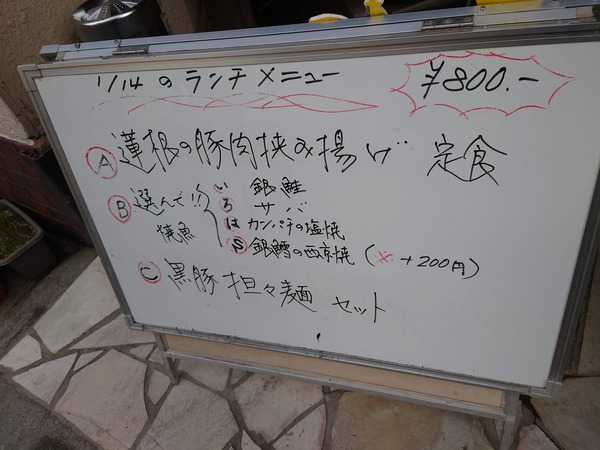 1/14 のランチメニュー ¥800.-
Ⓐ 蓮根の豚肉挟み揚げ 定食
Ⓑ 選んで!! 焼魚
い 銀鮭
ろ サバ
は カンパチの塩焼
Ⓢ 銀鱈の西京焼 (※ +200円)
Ⓒ 黒豚担々麺 セット